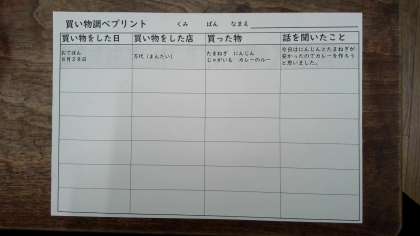 買い物調べプリント　くみ　ばん　なまえ
買い物をした日　買い物をした店　買った物　話を聞いたこと
おてほん
８月２８日
万代（まんだい）
たまねぎ　にんじん
じゃがいも　カレーのルー
今日はにんじんとたまねぎが
安かったのでカレーを作ろう
と思いました。